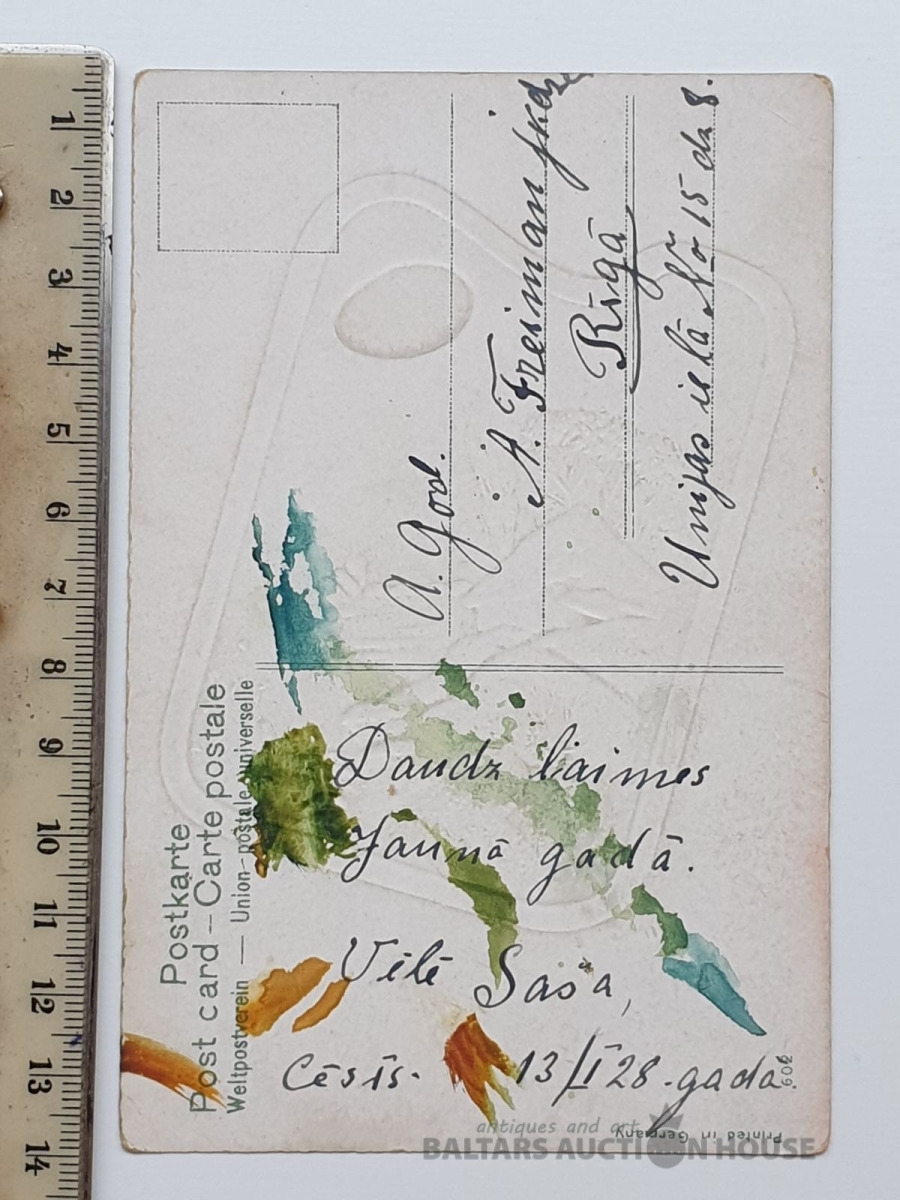 Postkarte
Post card — Carte postale
Weltpostverein — Union postale universelle
Daudz laimes
Jaunā gadā.
Vēlē Saša,
Cēsīs. 13/I 28. gadā.
A. God.
A. Freiman
Rīgā
Unijas ielā No 15 dz 8.
602
Printed in Germany
1
2
3
4
5
6
7
8
9
10
11
12
13
14
antiques and art
BALTARS AUCTION HOUSE